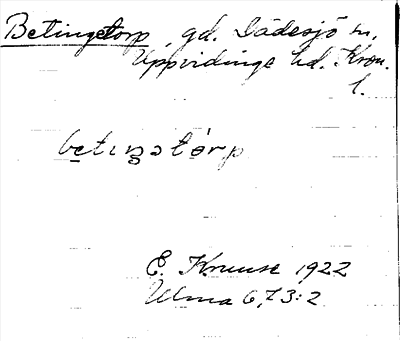 Betingetorp, gd. Dädesjö sn,
Uppvidinge hd. Kron.
l.
betıŋətórp
E. Kruuse 1922
Ulma 673:2